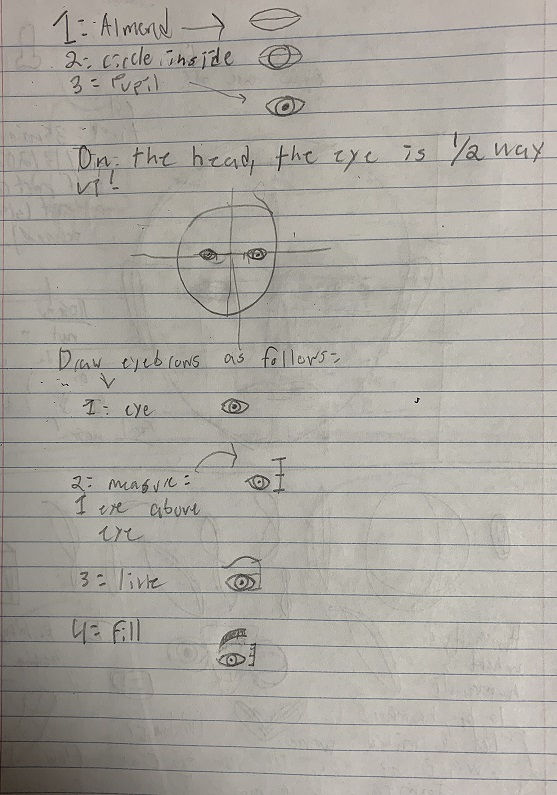 1= Almond
2= circle inside
3= Pupil
On the head, the eye is 1/2 way
up!
Draw eyebrows as follows=
1= eye
2= measure=
1 eye above
eye
3= line
4= fill